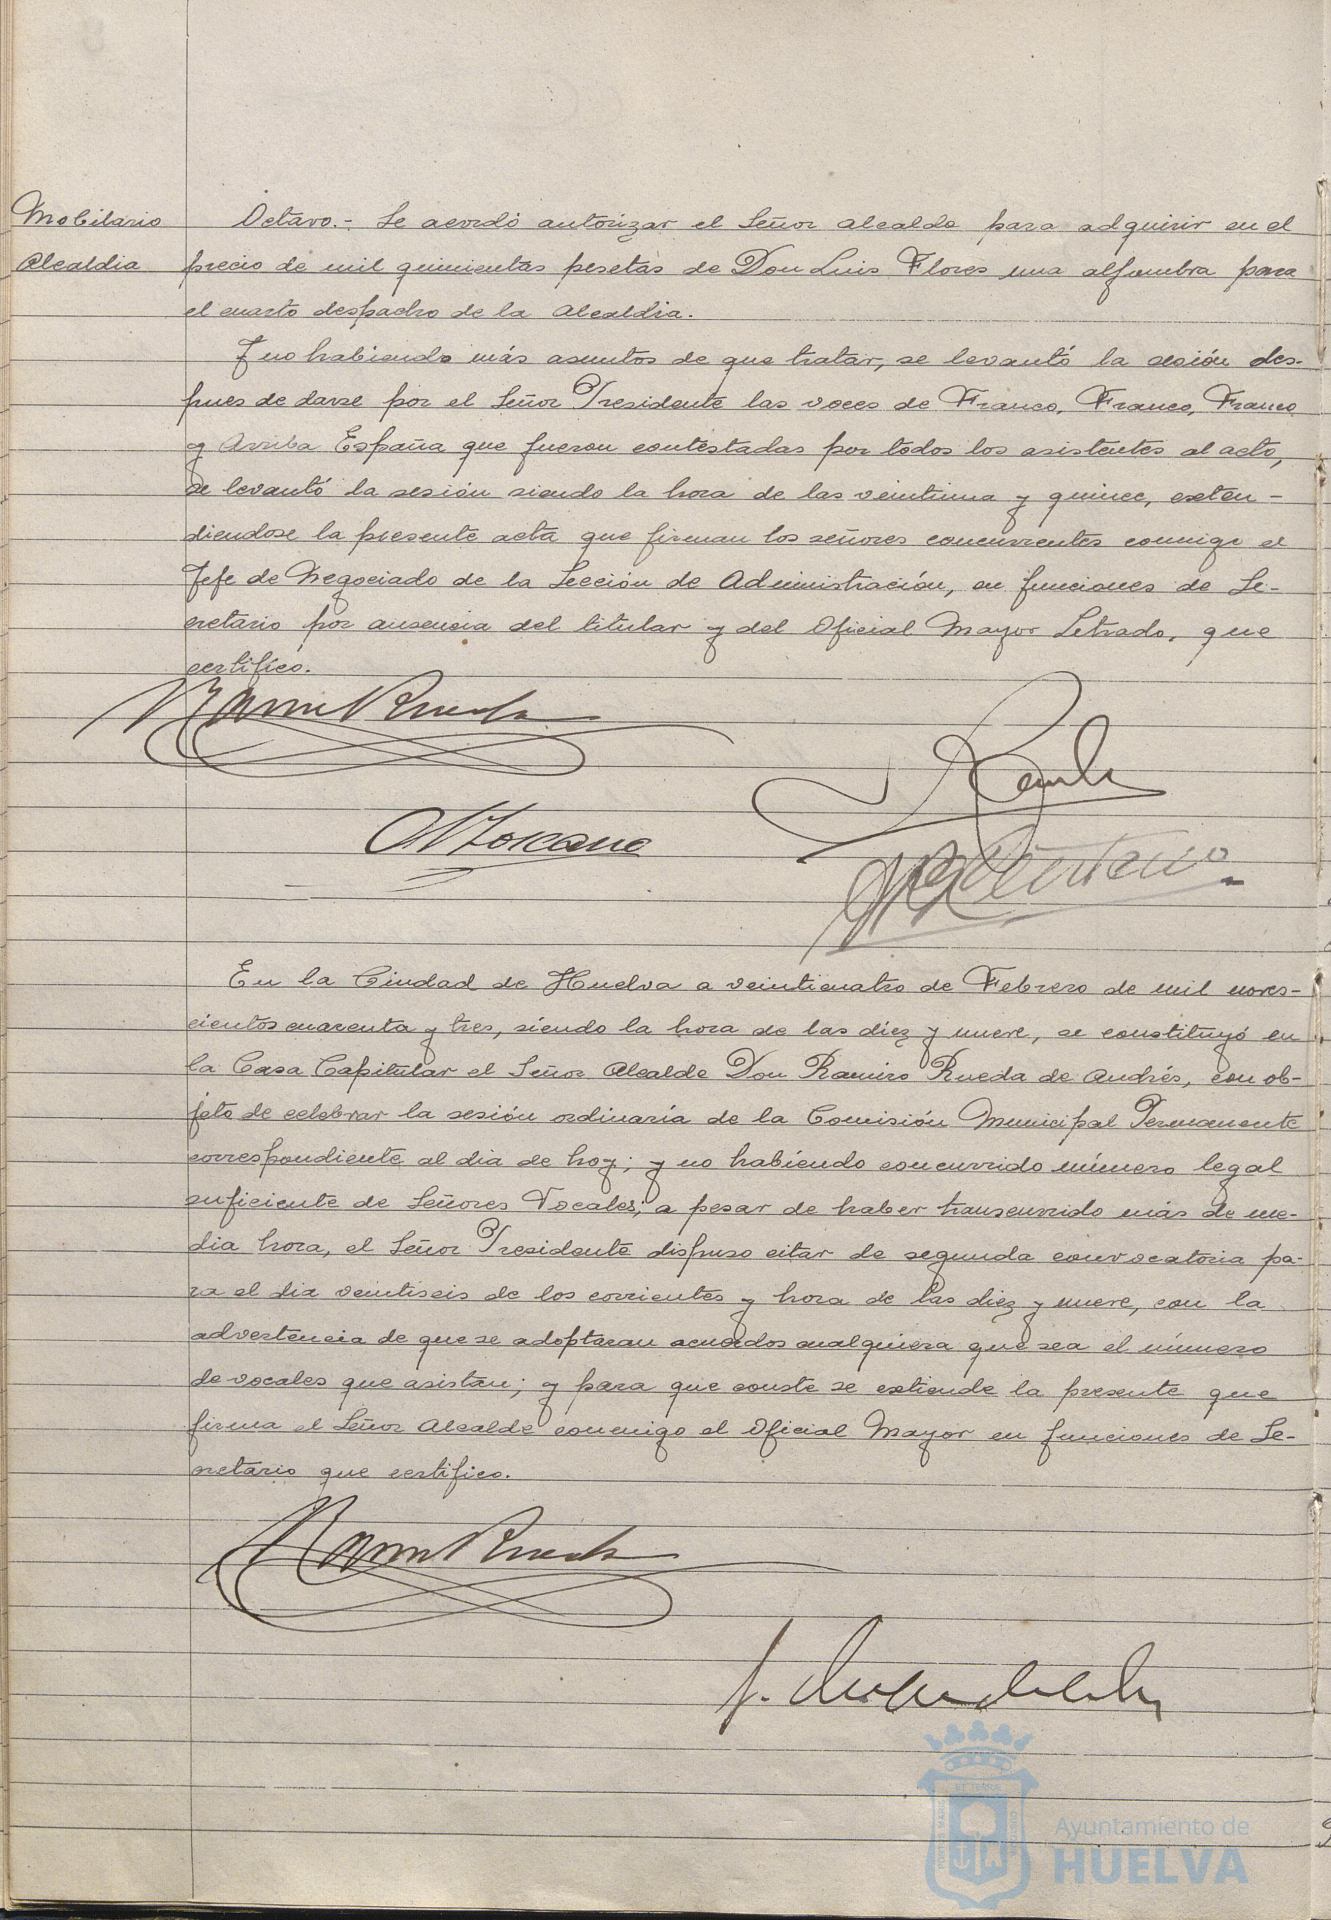 Mobilario
Alcaldia
Octavo.- Se acordó autorizar el Señor Alcalde para adquirir en el
precio de mil quinientas pesetas de Don Luis Flores una alfombra para
el cuarto despacho de la Alcaldia.
Y no habiendo más asuntos de que tratar, se levantó la sesión des-
pues de darse por el Señor Presidente las voces de Franco, Franco, Franco
y Arriba España que fueron contestadas por todos los asistentes al acto,
se levantó la sesión siendo la hora de las veintiuna y quince, exten-
diendose la presente acta que firman los señores concurrentes conmigo el
Jefe de Negociado de la Sección de Administración, en funciones de Se-
cretario por ausencia del titular y del Oficial Mayor Letrado, que
certifico.
Ramiro Rueda
Toscano
En la Ciudad de Huelva a veinticuatro de Febrero de mil noves-
cientos cuarenta y tres, siendo la hora de las diez y nueve, se constituyó en
la Casa Capitular el Señor Alcalde Don Ramiro Rueda de Andrés, con ob-
jeto de celebrar la sesión ordinaria de la Comisión Municipal Permanente
correspondiente al dia de hoy; y no habiendo concurrido número legal
suficiente de Señores Vocales, a pesar de haber transcurrido más de me-
dia hora, el Señor Presidente dispuso citar de segunda convocatoria pa-
ra el dia veintiseis de los corrientes y hora de las diez y nueve, con la
advertencia de que se adoptaran acuerdos cualquiera que sea el número
de vocales que asistan; y para que conste se extiende la presente que
firma el Señor Alcalde conmigo el Oficial Mayor en funciones de Se-
cretario que certifico.
Ramiro Rueda
Ayuntamiento de
HUELVA